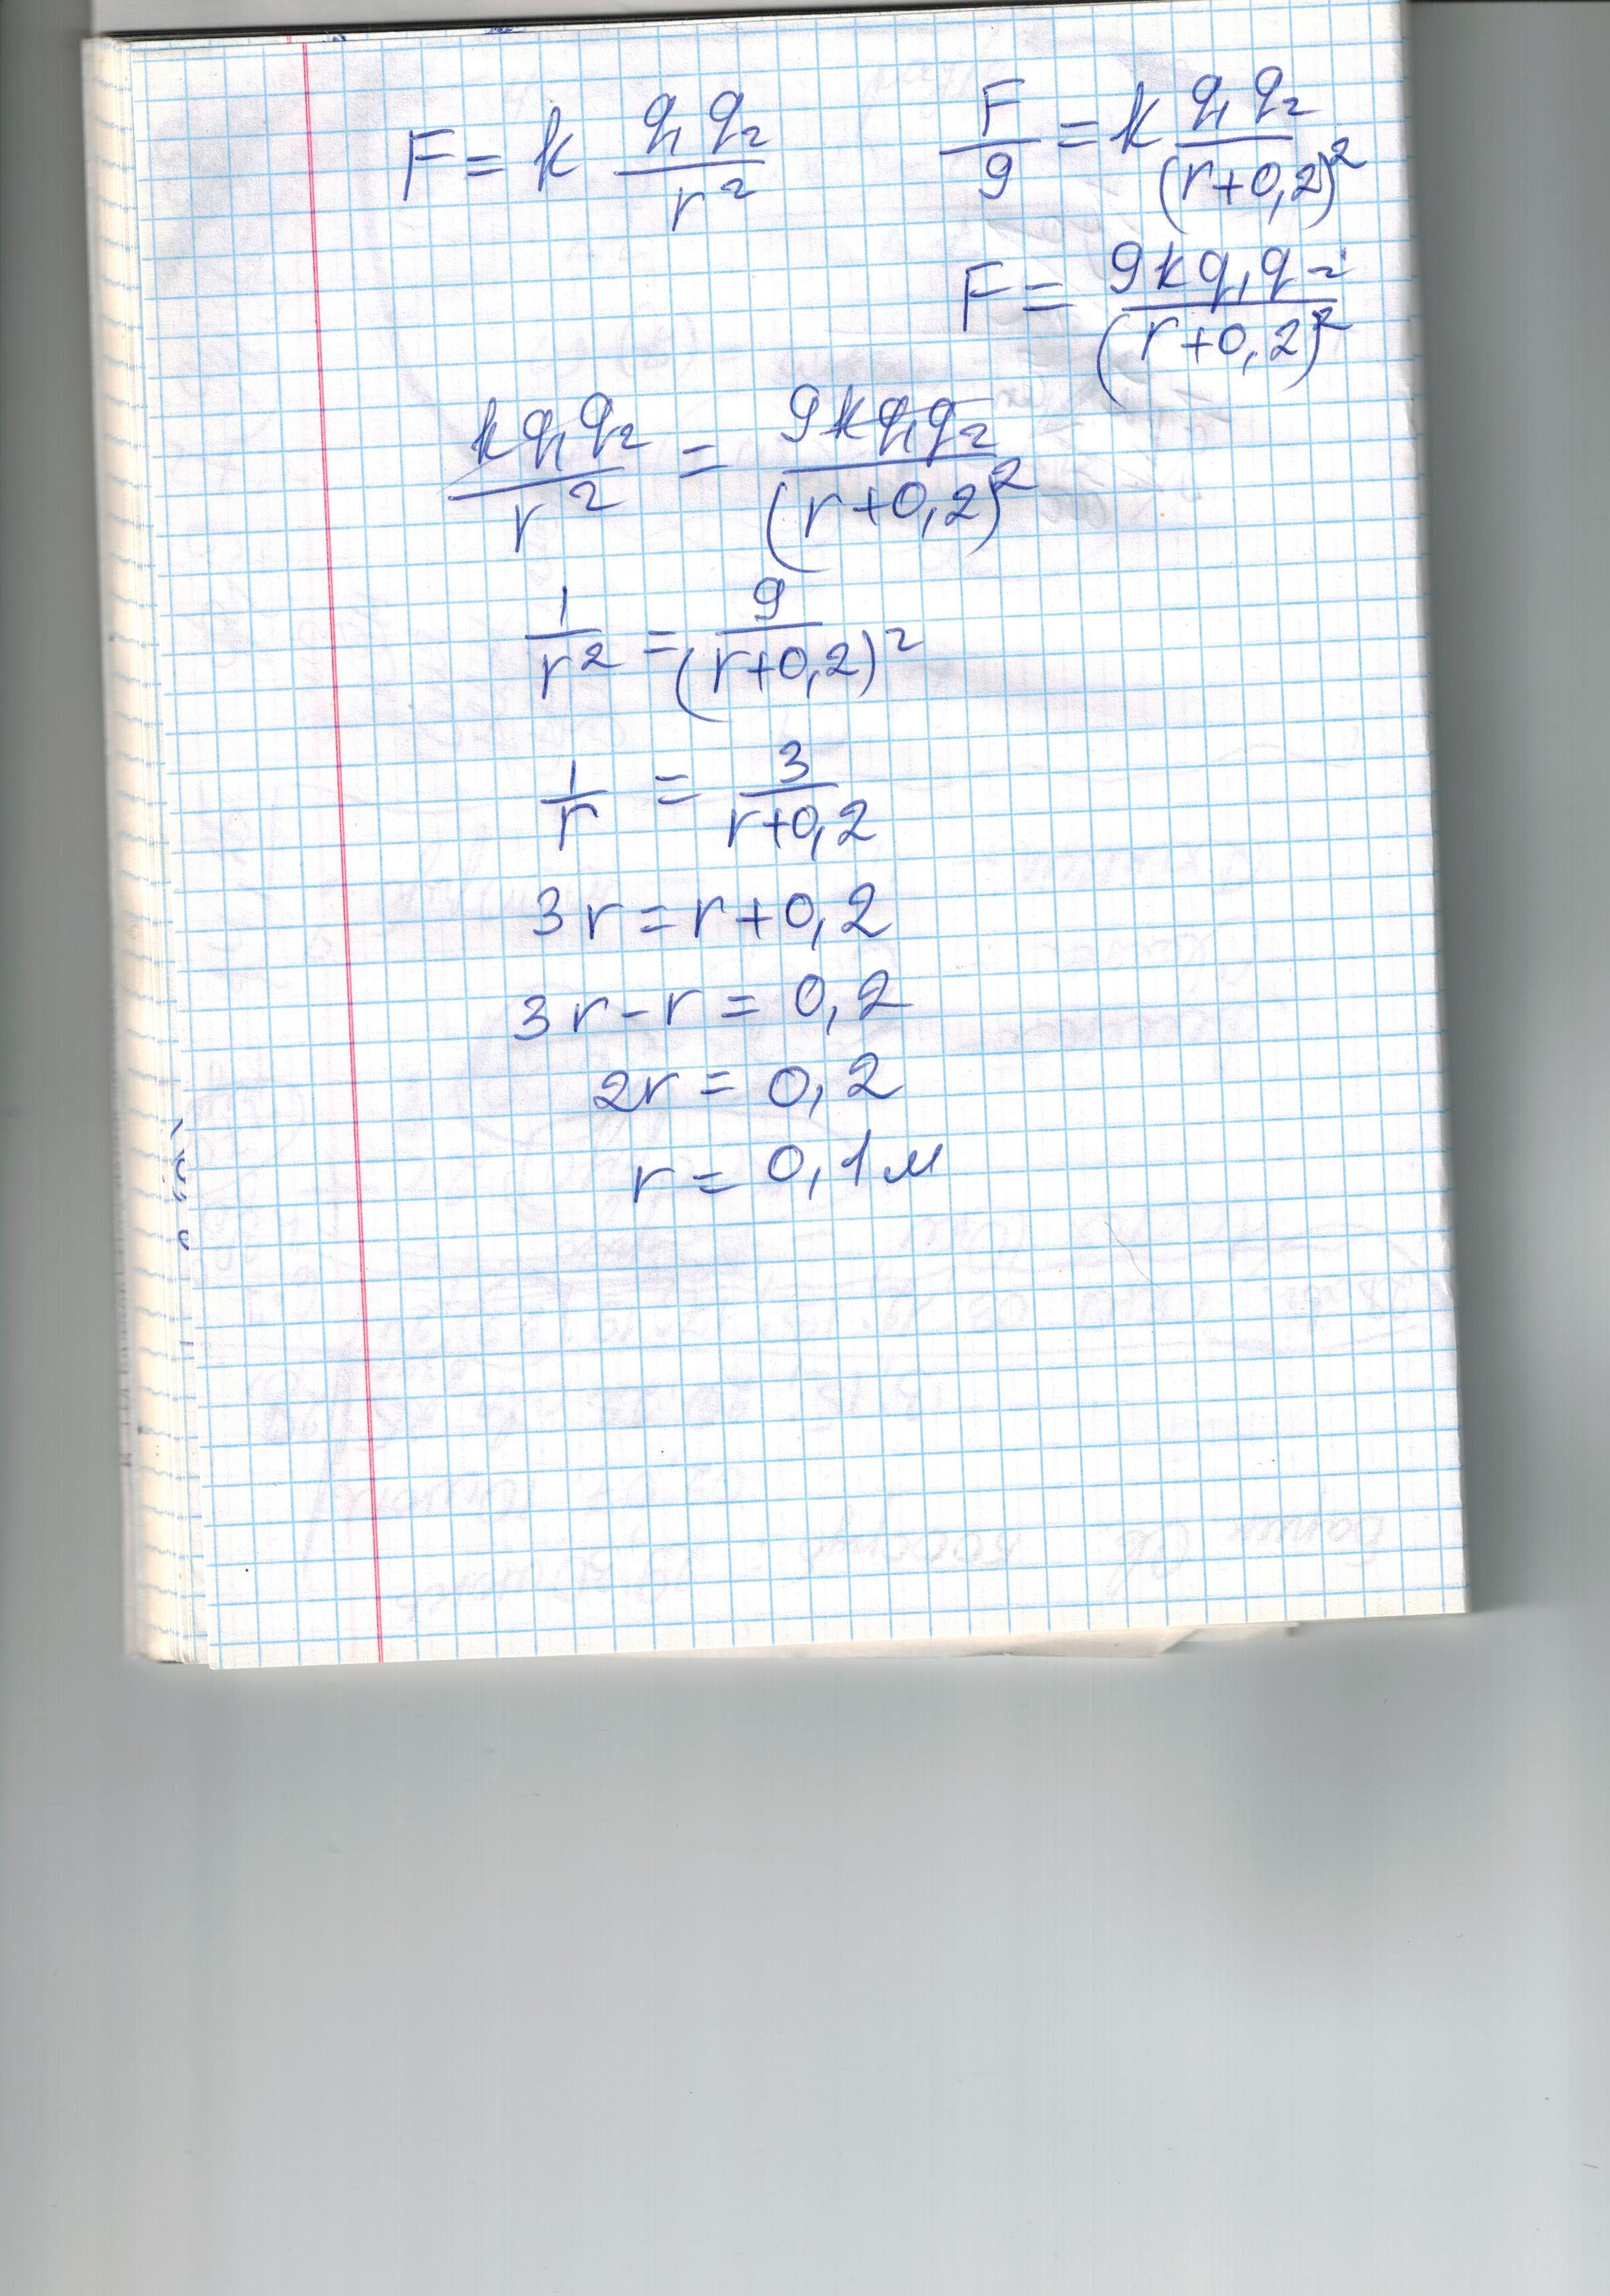 F = k q₁q₂/r² F/9 = k q₁q₂/(r+0,2)²
F = 9kq₁q₂/(r+0,2)²
kq₁q₂/r² = 9kq₁q₂/(r+0,2)²
1/r² = 9/(r+0,2)²
1/r = 3/r+0,2
3r = r+0,2
3r-r = 0,2
2r = 0,2
r = 0,1м